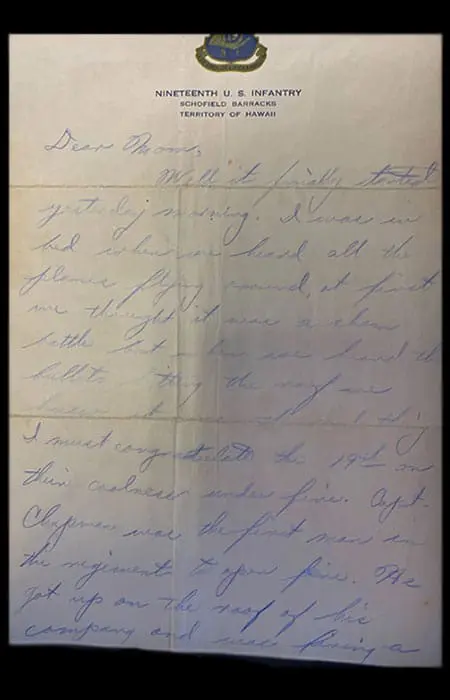 NINETEENTH U. S. INFANTRY
SCHOFIELD BARRACKS
TERRITORY OF HAWAII
Dear Mom,
Well it finally started
yesterday morning. I was in
bed when we heard all the
planes flying around, at first
we thought it was a sham
battle but when we heard th
bullets hitting the roof we
knew it was
I must congratulate the 19th on
their coolness under fire. Capt.
Chapman was the first man in
the regiment to open fire. He
got up on the roof of his
company and was firing a